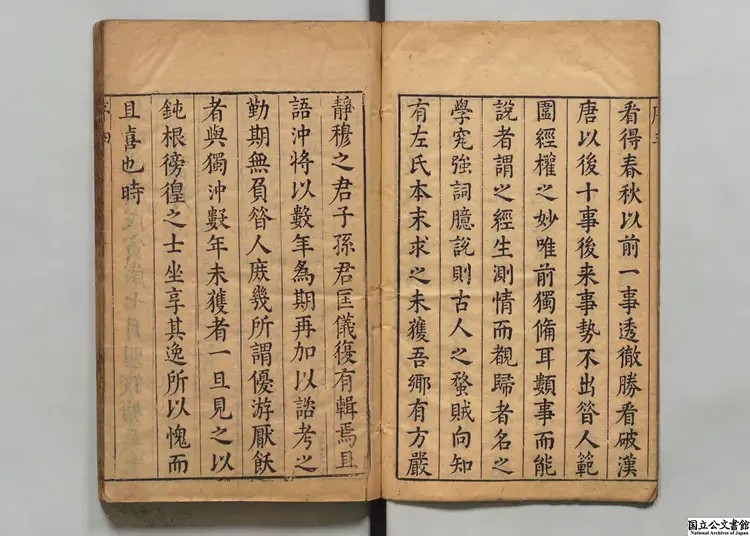 看得春秋以前一事透徹勝看破漢
唐以後十事後来事勢不出昝人範
圍經權之妙唯前獨備耳類事而能
說者謂之經生測情而覩歸者名之
學究強詞臆說則古人之蝥賊向知
有左氏本末求之未獲吾鄉有方嚴
静穆之君子孫君匡儀復有輯焉且
語沖將以數年為期再加以諮考之
勤期無負昝人庻幾所謂優游厭飫
者與獨沖數年未獲者一旦見之以
鈍根徬徨之士坐享其逸所以愧而
且喜也時
国立公文書館
National Archives of Japan